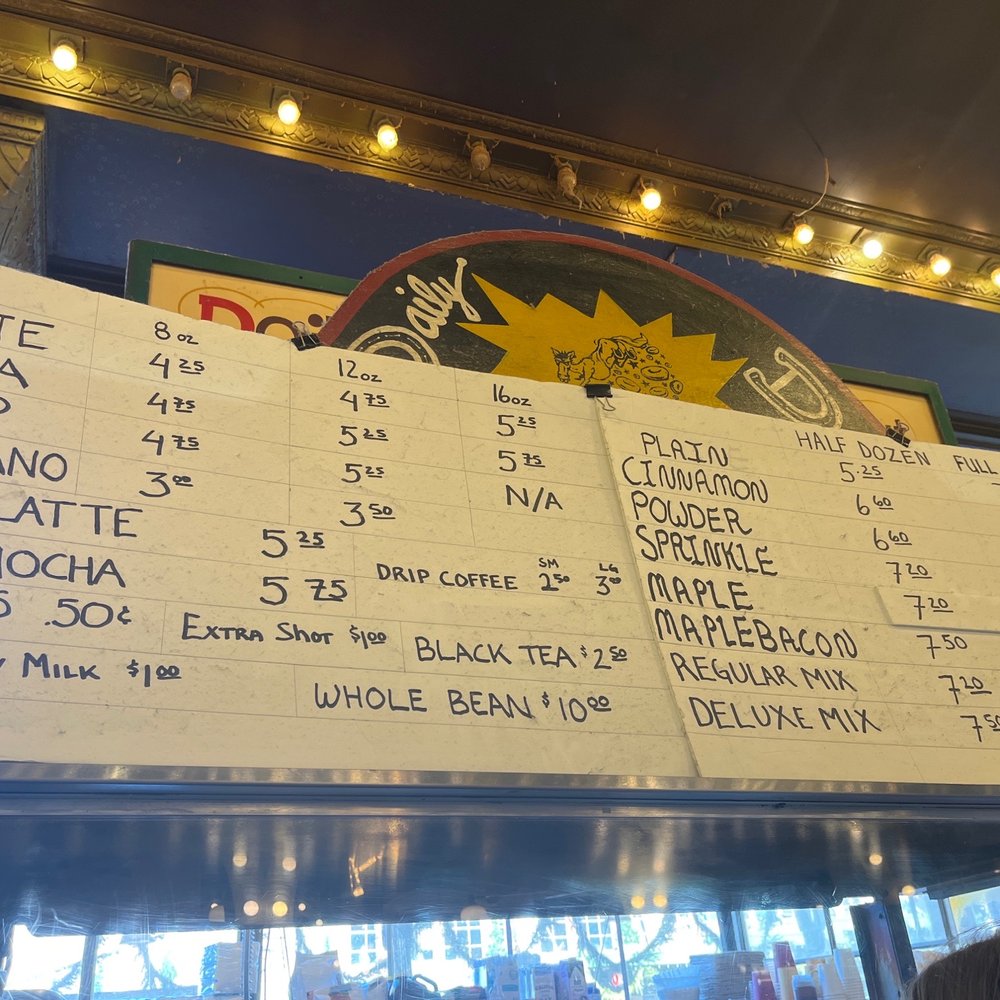 Daily
8 oz 12 oz 16 oz
4.25 4.75 5.25
4.75 5.25 5.75
4.75 5.25 N/A
3.00 3.50
LATTE 5.25
MOCHA 5.75
DRIP COFFEE SM 2.50 LG 3.00
.50¢ EXTRA SHOT $1.00 BLACK TEA $2.50
MILK $1.00 WHOLE BEAN $10.00
HALF DOZEN FULL
PLAIN 5.25
CINNAMON 6.60
POWDER 6.60
SPRINKLE 7.20
MAPLE 7.20
MAPLE BACON 7.50
REGULAR MIX 7.20
DELUXE MIX 7.50